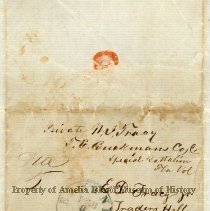 Private N. S. Tracy
T. E. Buckmans Co. C
Special Battalion
Fla Vol
To
Property of Amelia Island Museum of History
E. D. Tracy
Traders Hill